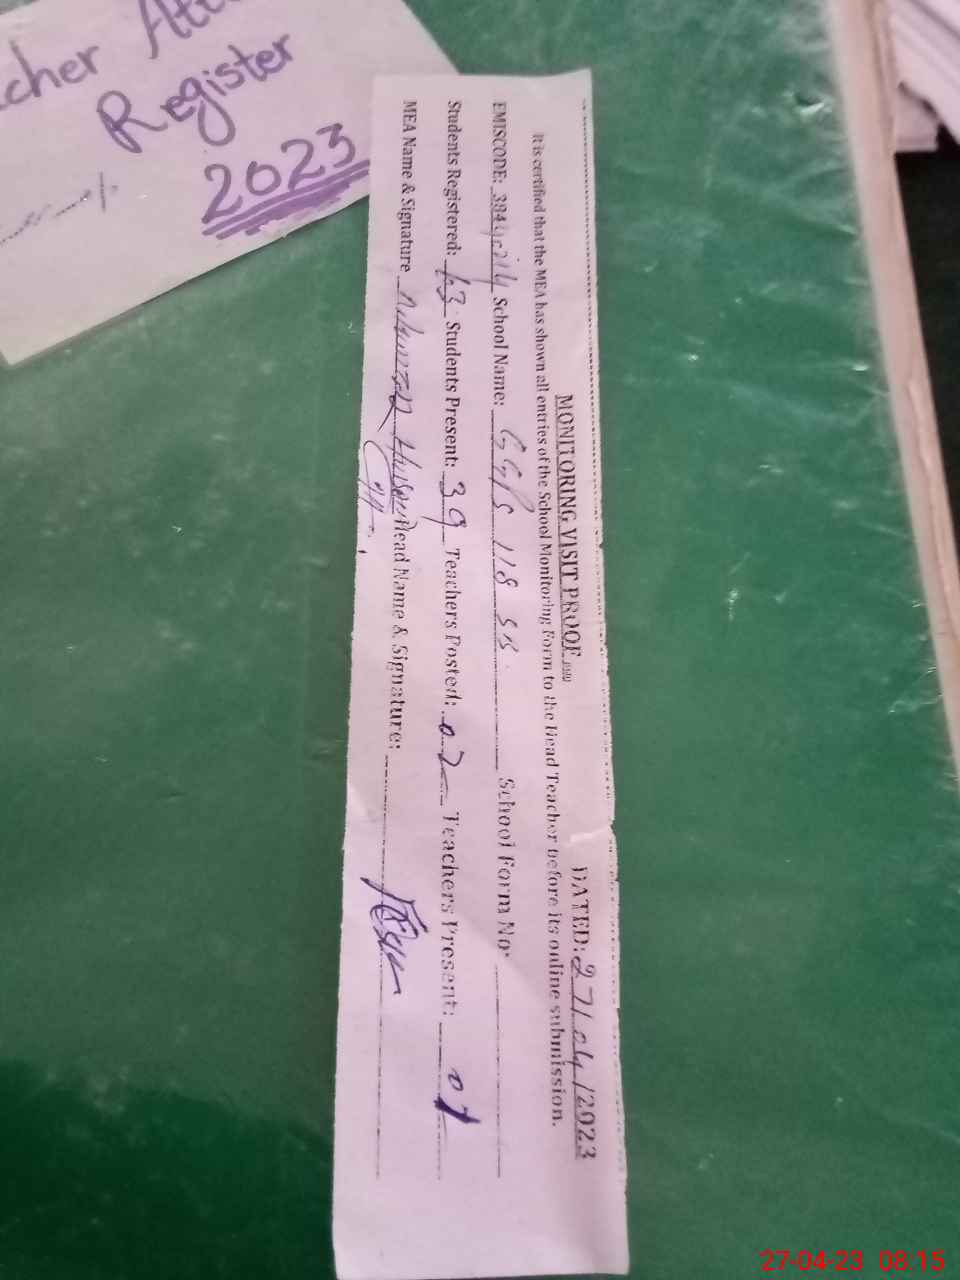 cher Att
Register
2023
MONITORING VISIT PROOF DATED: 27/04/2023
It is certified that the MEA has shown all entries of the School Monitoring Form to the Head Teacher before its online submission.
EMISCODE: School Name: GGPS 118 SB School Form No
Students Registered: 63 Students Present: 39 Teachers Posted: 02 Teachers Present: 01
MEA Name & Signature Head Name & Signature:
27-04-23 08:15